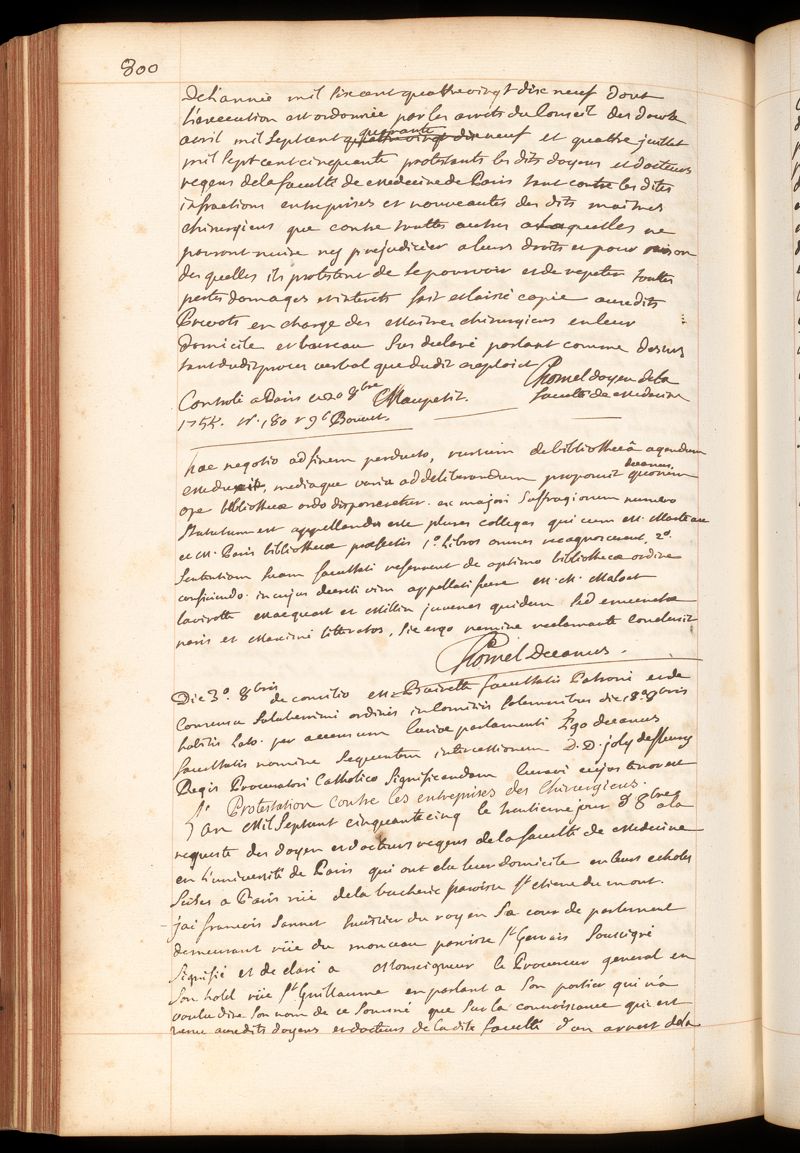 800
De l'année mil six cent quattrevingt dix neuf dont
L'execution est ordonnée par les arrets du Conseil des douze
avril mil sept cent quarante neuf et quattre juillet
mil sept cent cinquante protestants les dits doyens et docteurs
regens de la faculté de medecine de Paris tant contre les dites
infractions entreprises et nouveautés des dits maitres
chirurgiens que contre touttes autres es quelles ne
pouront nuire ny prejudicier a leurs droits et pour raison
des quelles ils protestent de se pourvoir et de repeter touttes
pertes domages et interets fait et laissé copie auxdits
Prevots en charge des Maitres chirurgiens en leur
domicile et bureau sus declaré parlant comme dessus
tant dudit proces verbal que dudit exploit Chomel doyen de la
Controlé a Paris ce 20 8bre Maupetit. faculté de medecine
1755. n°. 180 r 96 Bonnet.
hac negotio ad finem perducto, rursum de bibliotheca agendum
mediaque varia ad deliberandum proposuit decanus quorum
ope bibliothecae ordo disponeretur. ex majori suffragiorum numero
Statutum est appellandos esse plures collegas qui cum M. Marteau
et M. Baron bibliothecae praefectis 1°. libros omnes recognoscerent, 2°.
sententiam suam facultati referrent de optimo bibliothecae ordine
conficiendo. in cujus decreti vim appellati fuere M. M. Maloet
lavirotte Macquart et Millin juvenes quidem sed emunctae
naris et Maxime litteratos, sic ergo nemine reclamante conclusit
Chomel Decanus.
Die 3°. 8bris de consilio M. facultatis Patroni et de
Consensu Saluberrimi ordinis in Comitiis solemnibus die 18a 9bris
habitis lato. per accensum Curiae parlamenti Ego decanus
facultatis nomine sequentem intercessionem D. D. joly de fleury
Regis Procuratori Catholico significandam curavi cujus tenor est
Protestation contre les entreprises des Chirurgiens.
L'an Mil Sept cent cinquante cinq le trentieme jour d'8bre a la
requeste des doyen et docteurs regens de la faculté de Medecine
en l'université de Paris qui ont elu leur domicile en leurs echoles
Sises a Paris rüe de la bucherie paroisse St. etiene du mont.
j'ai francois Sannet huissier du roy en Sa cour de parlement
demeurant rüe du monceau paroisse St Gervais Soussigné
signifié et declaré a Monseigneur le Procureur general en
son hotel rüe St. Guillaume en parlant a son portier qui n'a
voulu dire son nom de ce sommé que sur la connoissance qui est
venue auxdits doyens et docteurs de ladite faculté d'un arrest de la